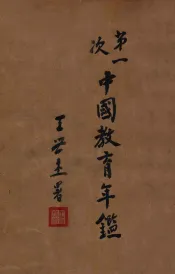 第一次
中國教育年鑑
王世杰署